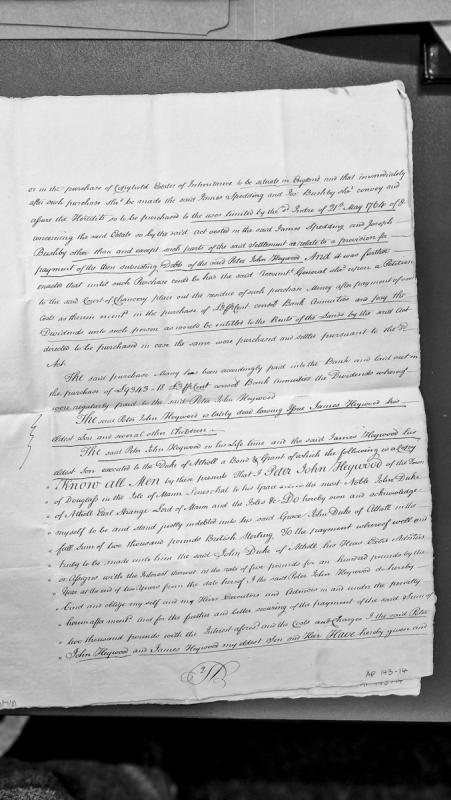 or in the purchase of Copyhold Estates of Inheritance to be situate in England and that immediately
after such purchase shod. be made the said James Spedding and Jos: Bushby shod. convey and
assure the Heredits so to be purchased to the uses limited by the sd. Indre of 21st. May 1764 of &
concerning the said Estate so by the said Act vested in the said James Spedding and Joseph
Bushby other than and except such parts of the said settlement as relate to a provision for
payment of the then subsisting Debts of the said Peter John Heywood And it was further
enacted that until such Purchase could be had the said Accomt. General shod. upon a Petition
to the said Court of Chancery place out the residue of such purchase Money after payment of
Costs as therein mentd. in the purchase of £3 PCent consol Bank Annuities and pay the
Dividends unto such person as would be intitled to the Rents of the Lands by the said Act
directed to be purchased in case the same were purchased and settled pursuant to the sd.
Act.
The said purchase Money has been accordingly paid into the Bank and laid out in
the purchase of £9343 - 18 £3 PCent consol Bank Annuities the Dividends whereof
were regularly paid to the said Peter John Heywood
The said Peter John Heywood is lately dead leaving James Heywood his
eldest Son and several other Children
The said Peter John Heywood in his Life time and the said James Heywood his
eldest Son executed to the Duke of Atholl a Bond & Grant of which the following is a Copy
" Know all Men by these presents That I Peter John Heywood of the Town
" of Douglass in the Isle of Mann Senescha to his Grace the most Noble John Duke
" of Atholl Earl Strange Lord of Mann and the Isles &c Do hereby own and acknowledge
" myself to be and stand justly indebted unto his said Grace John Duke of Atholl in the
" full Sum of two thousand pounds British Sterling To the payment whereof well and
" truly to be made unto him the said John Duke of Atholl his Heirs Exors Admtors
" or Assigns with the Interest thereof at the rate of five pounds for an hundred pounds by the
" Year at the end of two Years from the date hereof I the said Peter John Heywood do hereby
" bind and oblige myself and my Heirs Executors and Admors in and under the penalty
" herein after mentd. and for the further and better securing of the payment of the said Sum of
" two thousand pounds with the Interest aforesd. and the Costs and Charges I the said Peter
" John Heywood and James Heywood my eldest Son and Heir Have hereby given and
AP 143-14